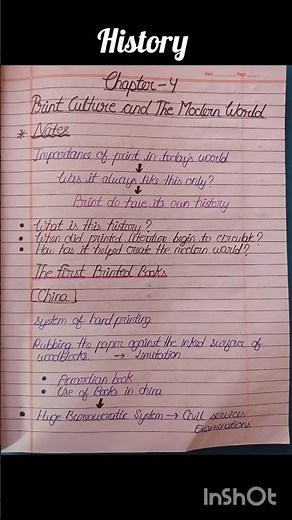 History
Date Page
Chapter-4
Print Culture and The Modern World
* Notes
Importance of print in today's world
↓
Was it always like this only?
↓
Print do have its own history
• What is this history?
• When did printed literature begin to circulate?
• How has it helped create the modern world?
The First Printed Books
[China]
System of hand printing
Rubbing the paper against the inked surface of
woodblocks → Limitation
• Accordian book
• Use of Books in China
↓
• Huge Bureaucratic System → Civil services
Examinations
InShOt